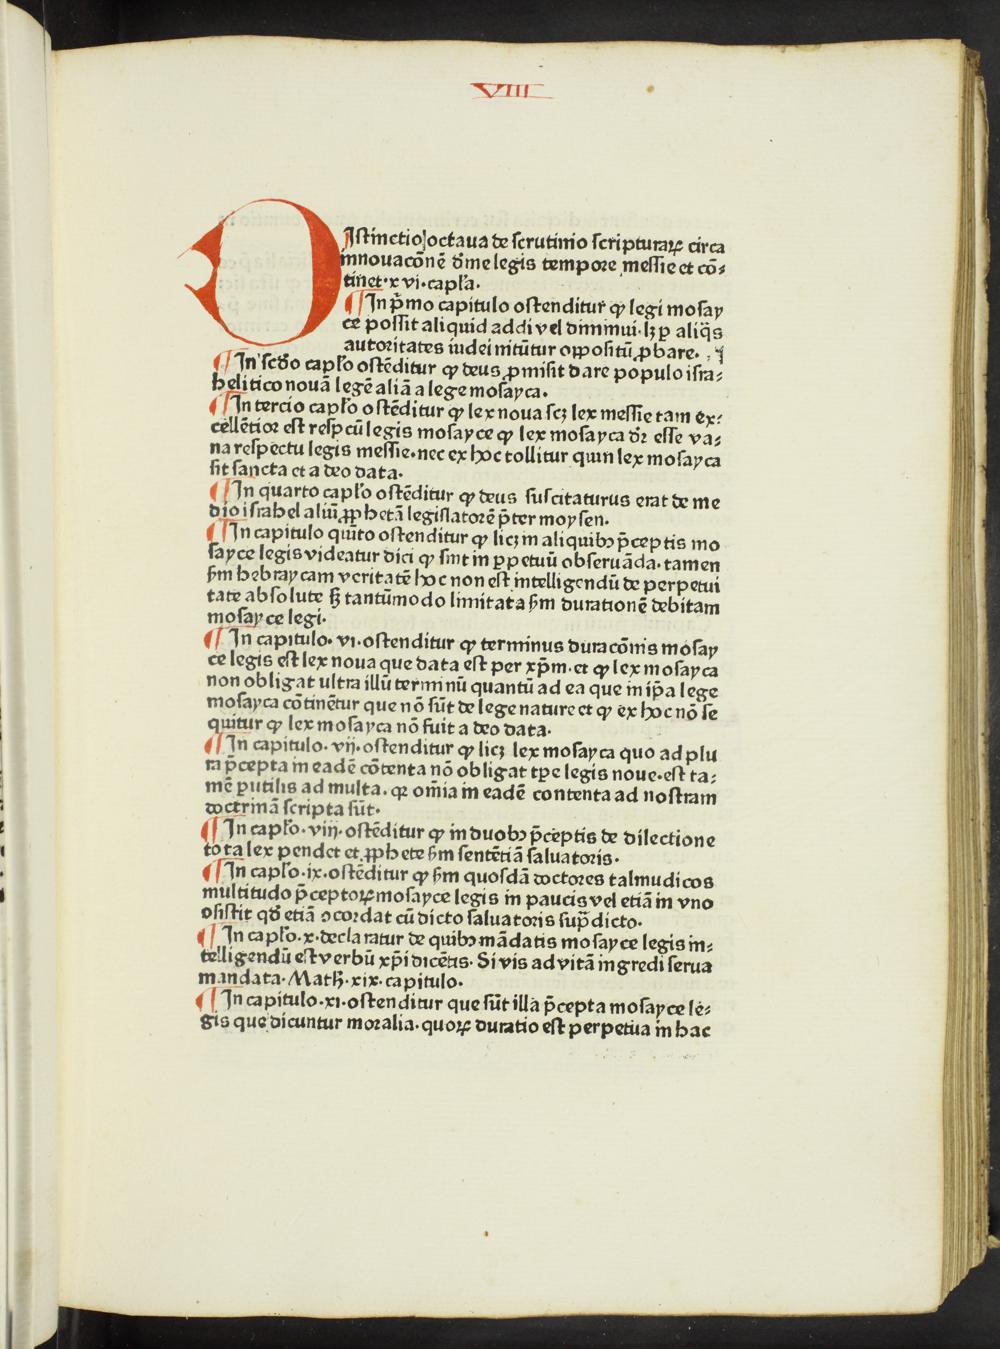 VIII
DIstinctio octaua de scrutinio scripturaꝝ circa
innouacōnē d̄me legis tempore messie et cō⸗
tinet·xvi·capl̄a.
¶In p̄mo capitulo ostenditur ꝙ legi mosay
ce possit aliquid addi vel diminui·lꝫ ꝑ aliq̄s
autoritates iudei nitūtur oppositū ꝓbare.
¶In scd̄o capl̄o ostēditur ꝙ deus ꝓmisit dare populo isra⸗
helitico nouā legē aliā a lege mosayca.
¶In tercio capl̄o ostēditur ꝙ lex noua scꝫ lex messie tam ex⸗
cellētior est resp̄cū legis mosayce ꝙ lex mosayca dr̄ esse va⸗
na respectu legis messie·nec ex hoc tollitur quin lex mosayca
sit sancta et a deo data.
¶In quarto capl̄o ostēditur ꝙ deus suscitaturus erat de me
dio israhel aliū ꝓphetā legislatorē p̄ter moysen.
¶In capitulo quīto ostenditur ꝙ licꝫ in aliquibꝰ p̄ceptis mo
sayce legis videatur dici ꝙ sint in ꝑpetuū obseruāda·tamen
sm̄ hebraycam veritatē hoc non est intelligendū de perpetui
tate absolute sꝫ tantūmodo limitata sm̄ durationē debitam
mosayce legi·
¶In capitulo·vi·ostenditur ꝙ terminus duracōnis mosay
ce legis est lex noua que data est per xp̄m·et ꝙ lex mosayca
non obligat ultra illū terminū quantū ad ea que in ip̄a lege
mosayca cōtinētur que nō sūt de lege nature et ꝙ ex hoc nō se
quitur ꝙ lex mosayca nō fuit a deo data.
¶In capitulo·vij·ostenditur ꝙ licꝫ lex mosayca quo ad plu
ra p̄cepta in eadē cōtenta nō obligat tp̄e legis noue·est ta⸗
mē ꝑutilis ad multa·qꝛ om̄ia in eadē contenta ad nostram
doctrinā scripta sūt·
¶In capl̄o·viij·ostēditur ꝙ in duobꝰ p̄ceptis de dilectione
tota lex pendet et ꝓphete sm̄ sentētiā saluatoris·
¶In capl̄o·ix·ostēditur ꝙ sm̄ quosdā doctores talmudicos
multitudo p̄ceptoꝝ mosayce legis in paucis vel etiā in vno
ↄsistit qd̄ etiā ↄcordat cū dicto saluatoris sup̄dicto·
¶In capl̄o·x·declaratur de quibꝰ mādatis mosayce legis in⸗
telligendū est verbū xp̄i dicētis·Si vis ad vitā ingredi serua
mandata·Math̄·xix·capitulo·
¶In capitulo·xi·ostenditur que sūt illa p̄cepta mosayce le⸗
gis que dicuntur moralia·quoꝝ duratio est perpetua in hac